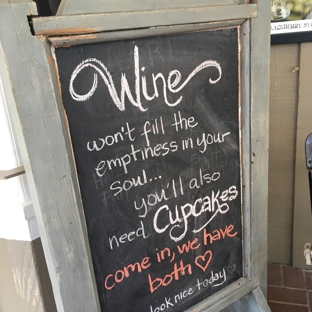 Wine
won't fill the
emptiness in your
soul...
you'll also
need Cupcakes
come in, we have
both ♡
look nice today